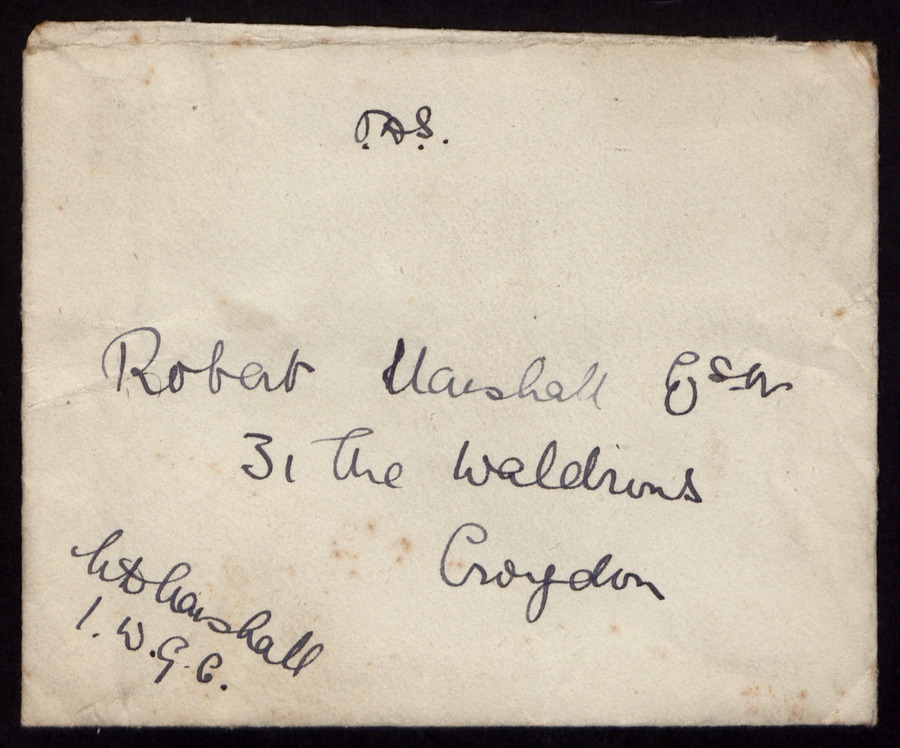 O.A.S.
Robert Marshall Esqr
31 The Waldrons
Croydon
WD Marshall
I.W.G.C.